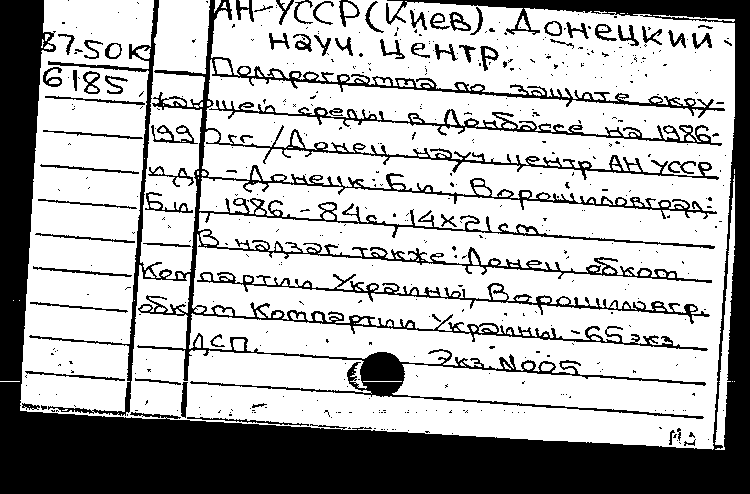 АН УССР (Киев). Донецкий
науч. центр.
87-50К
6185
Подпрограмма по защите окру-
жающей среды в Донбассе на 1986-
1990гг. / Донец. науч. центр АН УССР
и др. - Донецк: Б.и.; Ворошиловград:
Б.и., 1986. - 84с.; 14×21cm.
В надзаг. также: Донец. обком
Компартии Украины, Ворошиловгр.
обком Компартии Украины. - 65 экз.
ДСП. Экз. №005.